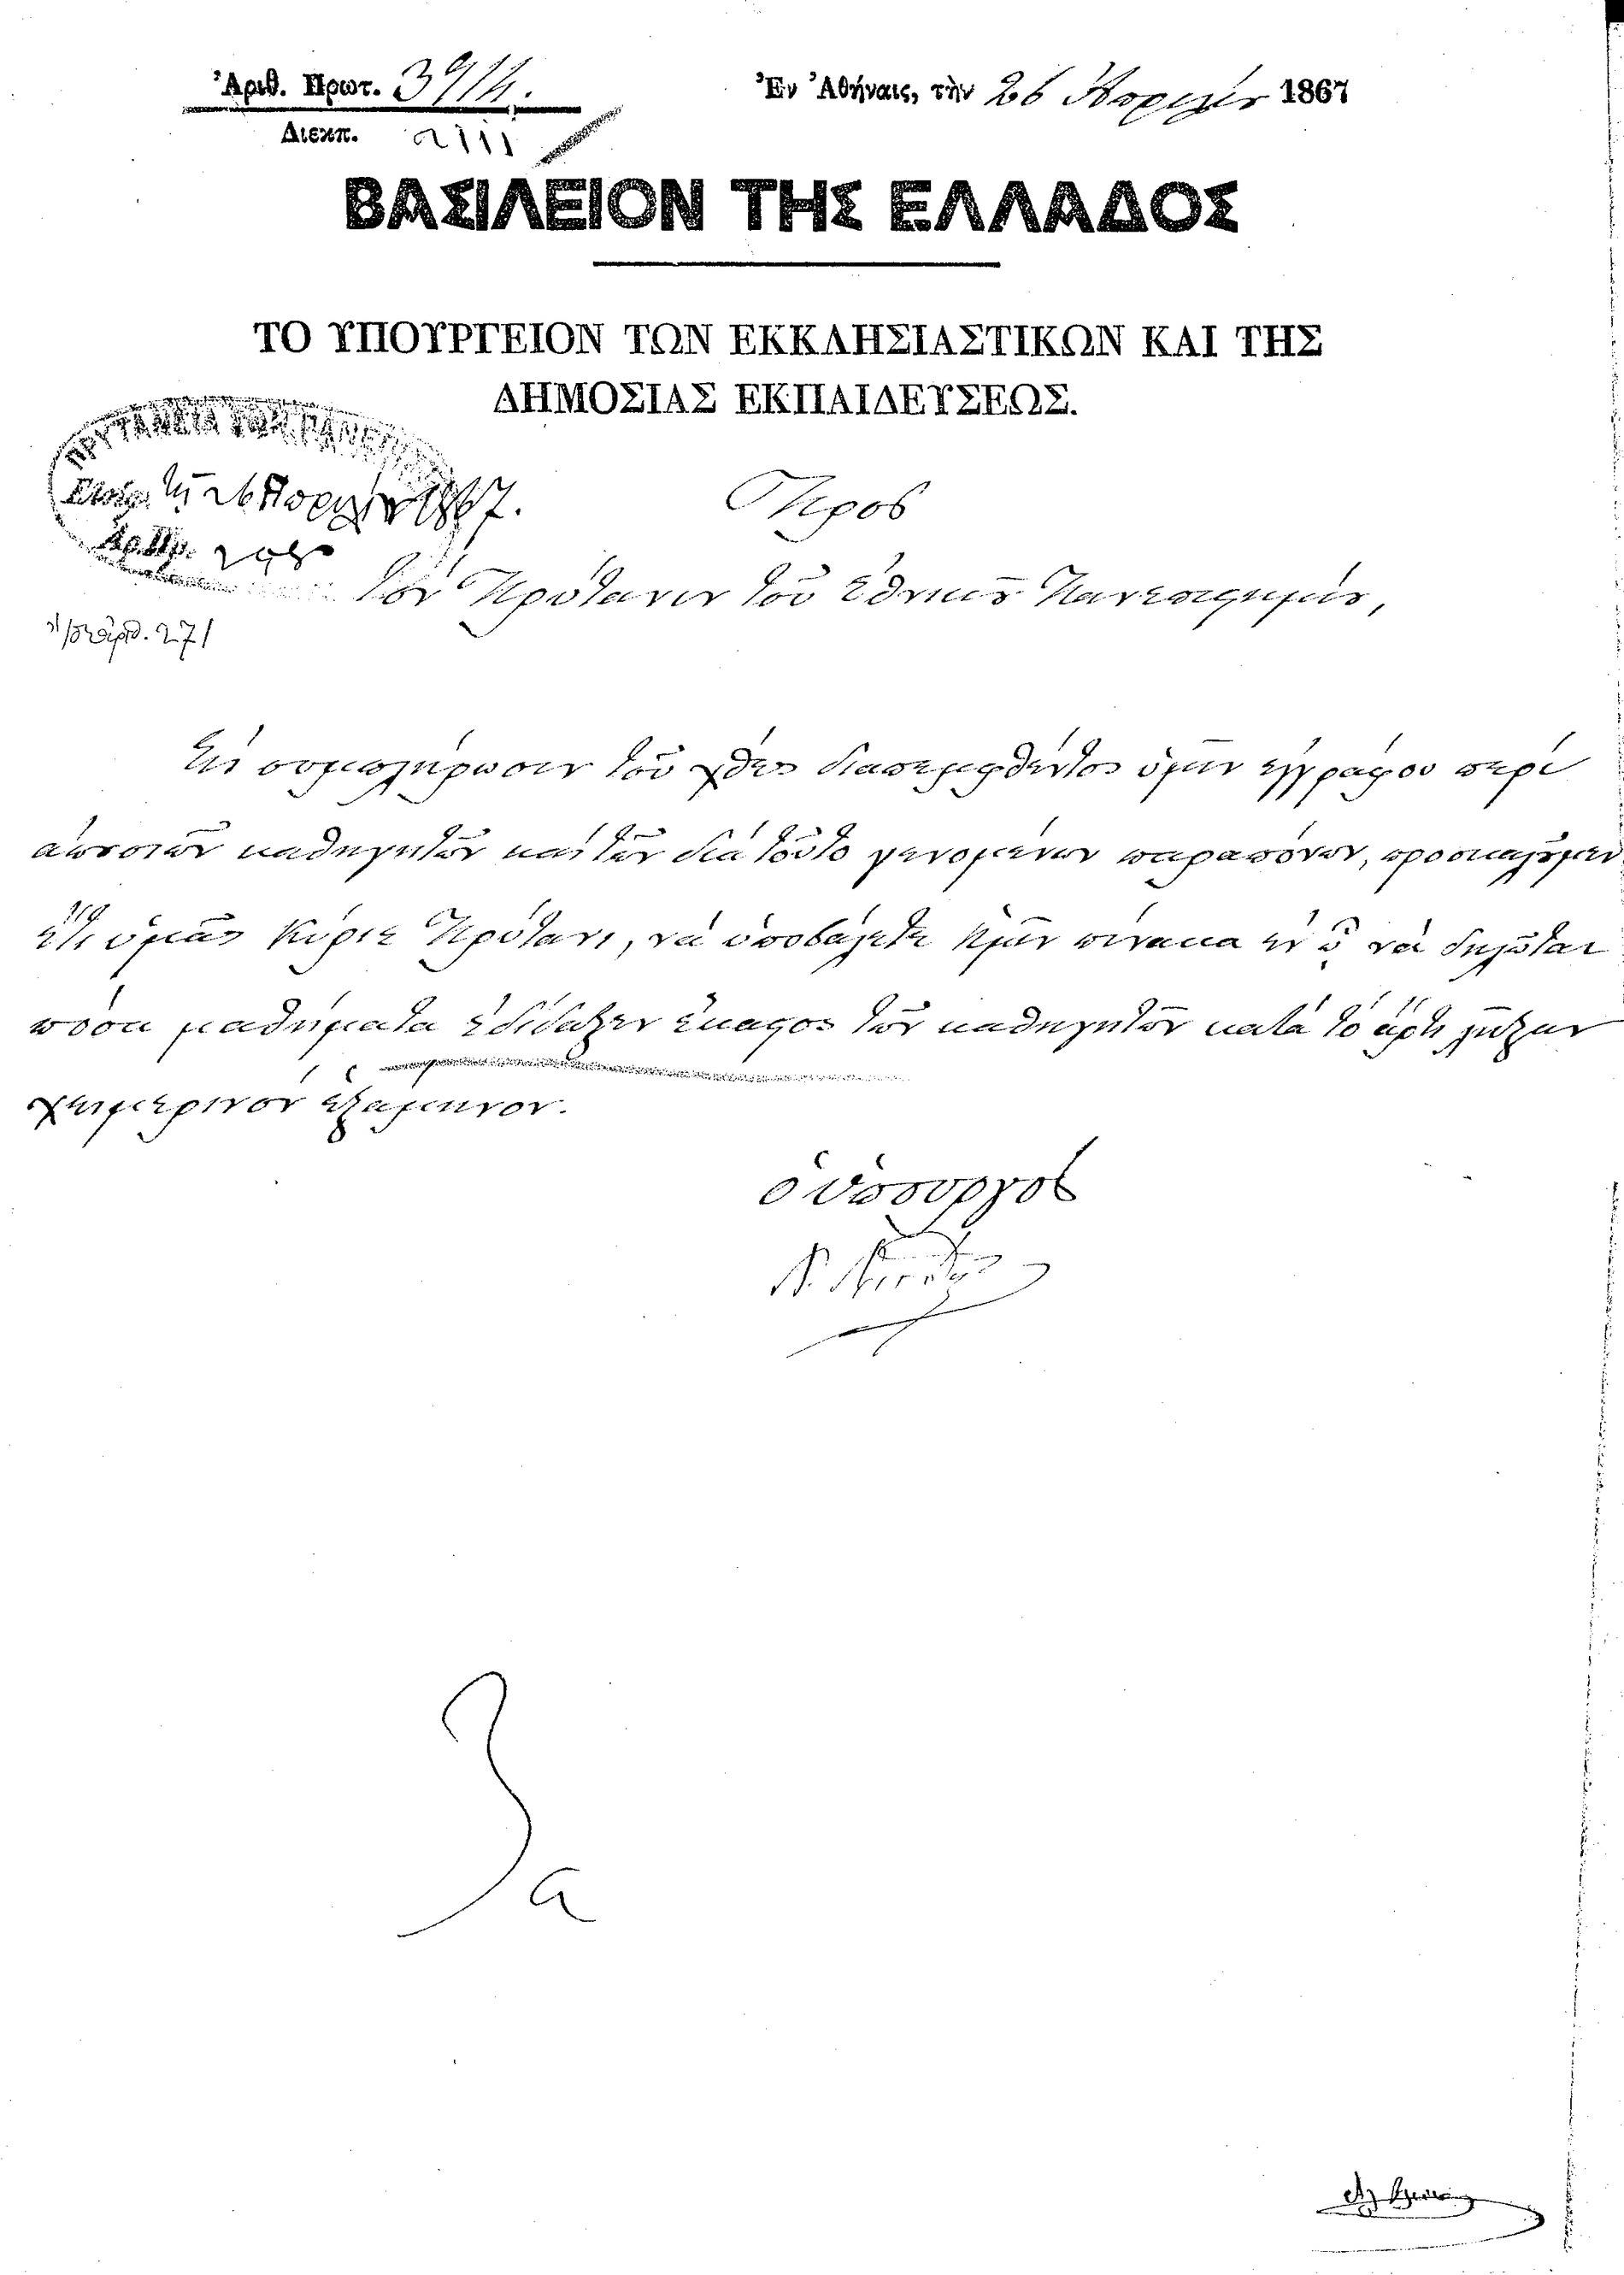 Ἀριθ. Πρωτ. 3914.
Διεκπ.
Ἐν Ἀθήναις, τὴν 26 Νοεμβρίου 1867
ΒΑΣΙΛΕΙΟΝ ΤΗΣ ΕΛΛΑΔΟΣ
ΤΟ ΥΠΟΥΡΓΕΙΟΝ ΤΩΝ ΕΚΚΛΗΣΙΑΣΤΙΚΩΝ ΚΑΙ ΤΗΣ
ΔΗΜΟΣΙΑΣ ΕΚΠΑΙΔΕΥΣΕΩΣ.
τῇ 26 Νοεμβρίου 1867.
Πρὸς
Τὸν Πρύτανιν τοῦ Ἐθνικοῦ Πανεπιστημίου,
271
Εἰς συμπλήρωσιν τοῦ χθὲς διαπεμφθέντος ὑμῖν ἐγγράφου περὶ
ἀπουσιῶν καθηγητῶν καὶ τῶν διὰ τοῦτο γενομένων παραπόνων, προσκαλοῦμεν
ἔτι ὑμᾶς Κύριε Πρύτανι, νὰ ὑποβάλητε ἡμῖν πίνακα ἐν ᾧ νὰ δηλῶται
πόσα μαθήματα ἐδίδαξεν ἕκαστος τῶν καθηγητῶν κατὰ τὸ ἄρτι λῆξαν
χειμερινὸν ἑξάμηνον.
ὁ Ὑπουργὸς